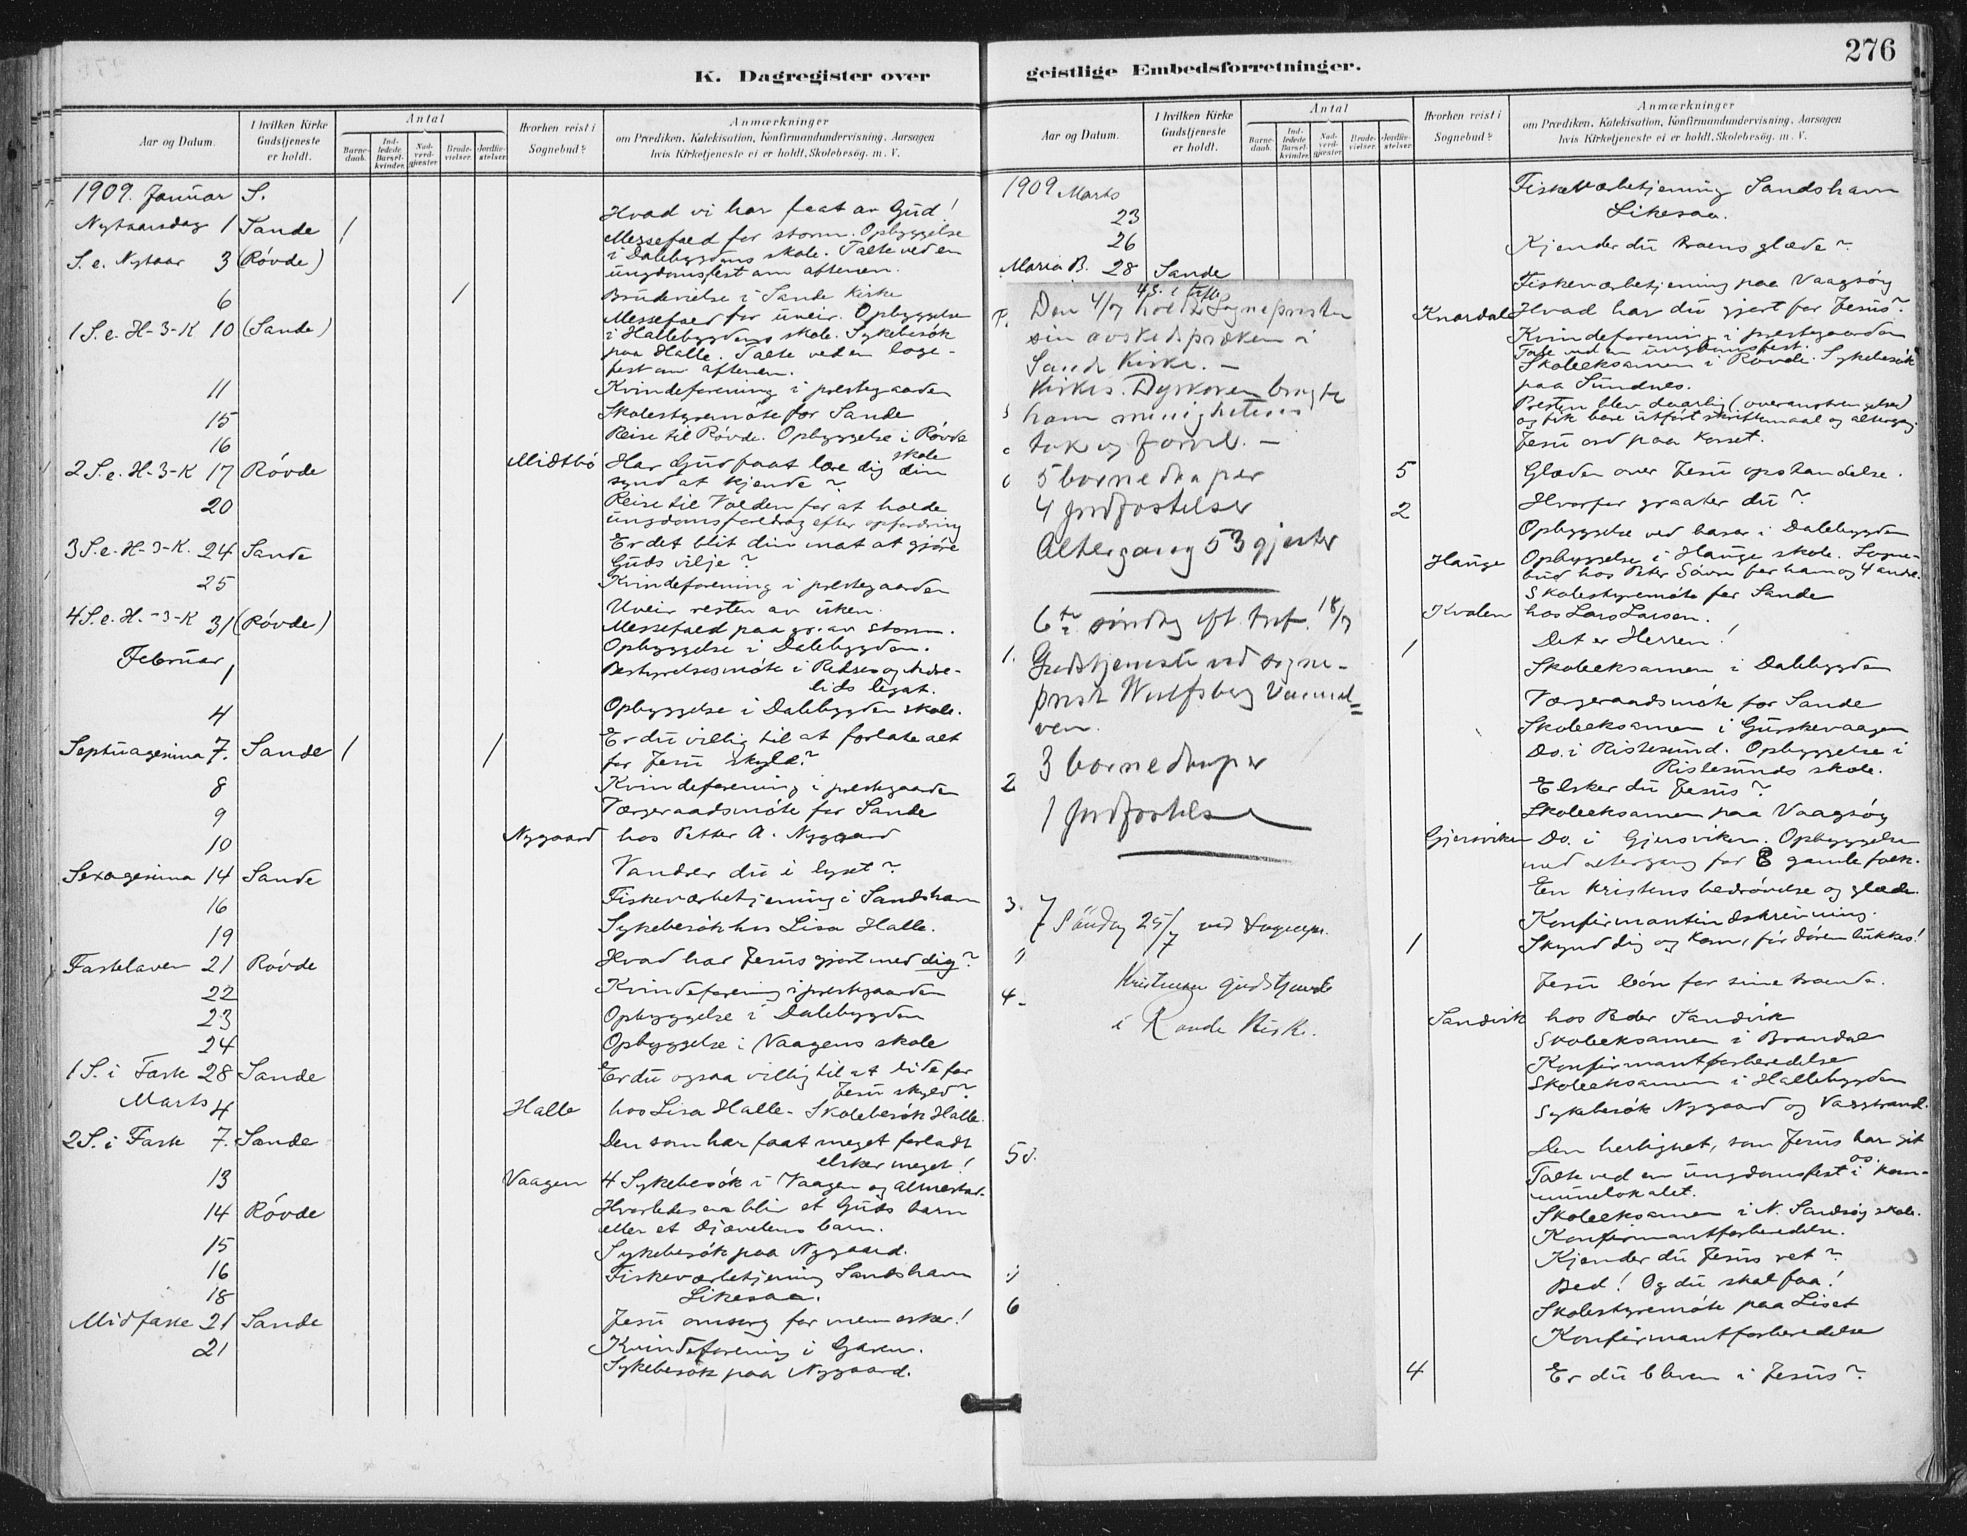 276
K. Dagregister over
geistlige Embedsforretninger.
Aar og Datum.
I hvilken Kirke Gudstjeneste er holdt.
Antal
Barnedaab.
Indledede Barselkvinder.
Nadverdgjester.
Brudevielser.
Jordfæstelser.
Hvorhen reist i Sognebud?
Anmærkninger
om Prædiken, Katekisation, Konfirmandundervisning, Aarsagen
hvis Kirketjeneste ei er holdt, Skolebesøg, m. V.
1909. Januar S.
Nytaarsdag 1 Sande 1 Hvad vi har faat av Gud!
S. e. Nytaar 3 (Røvde) Messefald for storm. Opbyggelse
i Dalebygdens skole. Talte ved en
ungdomsfest om aftenen.
6 1 Brudevielse i Sande Kirke
1 S. e. H-3-K 10 (Sande) Messefald for uveir. Opbyggelse
i Hallebygdens skole. Sykebesøk
paa Halle. Talte ved en loge-
fest om aftenen.
11 Kvindeforening i prestegaarden
15 Skolestyremøte for Sande
16 Reise til Røvde. Opbyggelse i Røvde
skole
2 S. e. H-3-K 17 Røvde Midtbø Har Gud faat lære dig din
synd at kjende?
20 Reise til Volden for at holde
ungdomsforedrag efter opfordring
3 S. e. H-3-K. 24 Sande Er det blit din mat at gjøre
Guds vilje?
25 Kvindeforening i prestegaarden
Uveir resten av uken.
4 S. e. H.-3-K 31 (Røvde) Messefald paa gr. av storm.
Opbyggelse i Dalebygden.
Februar 1 Bestyrelsesmøte i
lids legat.
4 Opbyggelse i Dalebygden skole.
Septuagesima 7. Sande 1 1 Er du villig til at forlate alt
for Jesu skyld?
8 Kvindeforening i prestegaarden
9 Værgeraadsmøte for Sande
10 Nygaard hos Petter A. Nygaard
Sexagesima 14 Sande Vandrer du i lyset?
16 Fiskeværbetjening i Sandshavn
19 Sykebesøk hos Lisa Halle.
Fastelaven 21 Røvde Hvad har Jesus gjort med dig?
22 Kvindeforening i prestegaarden
23 Opbyggelse i Dalebygden
24 Opbyggelse i Vaagens skole
1 S. i Faste 28 Sande Er du ogsaa villig til at lide for
Jesu skyld?
Marts 4 Halle hos Lisa Halle - Skolebesøk Halle.
2 S. i Faste 7. Sande Den som har faat meget forladt
elsker meget!
13 Vaagen 4 Sykebesøk i Vaagen og
14 Røvde Hvorledes en blir et Guds barn
eller et Djævelens barn.
15 Sykebesøk paa Nygaard.
16 Fiskeværbetjening Sandshavn
18 Likesaa.
Midfaste 21 Sande Jesu omsorg for mennesker!
21 Kvindeforening i Garen.
Sykebesøk paa Nygaard.
Aar og Datum.
I hvilken Kirke Gudstjeneste er holdt.
Antal
Barnedaab.
Indledede Barselkvinder.
Nadverdgjester.
Brudevielser.
Jordfæstelser.
Hvorhen reist i Sognebud?
Anmærkninger
om Prædiken, Katekisation, Konfirmandundervisning, Aarsagen
hvis Kirketjeneste ei er holdt, Skolebesøg, m. V.
1909 Marts
23 Fiskeværbetjening Sandshavn
26 Likesaa.
Maria B. 28 Sande Kjender du Troens glæde?
4 S. e. tref.
Den 4/7 holdt Sognepresten
sin avskedspræken i
Sande Kirke. -
Kirkes. Dyrkoren bragte
ham menighetens
tak og farvel. -
5 barnedaaper
4 Jordfæstelser
Altergang 53 gjester
6te søndag eft. tref. 18/7
Gudstjeneste ved sogne-
prest Wulfsberg Vanned-
ven.
3 barnedaaper
1 Jordfæstelse
7 Søndag 25/7 ved Sognepr.
Kristensen gudstjeneste
i Rovde Kirke.
Fiskeværbetjening paa Vaagsøy
Knardal Hvad har du gjort for Jesus?
Kvindeforening i prestegaarden
Tale ved en ungdomsfest.
Skoleeksamen i Røvde. Sykebesøk
paa Sundnes.
Presten blev daarlig (overanstrengelse)
og fik bare utført skriftemaal og altergang.
Jesu ord paa korset.
5 Glæden over Jesu opstandelse.
2 Hvorfor graater du?
Opbyggelse ved basar i Dalebygden
Hauge Opbyggelse i Hauge skole. Sogne-
bud hos Peter Søvre for ham og 4 andre.
Skolestyremøte for Sande
Kvalen hos Lars Larsen.
1 Det er Herren!
Skoleeksamen i Dalebygden
Værgeraadsmøte for Sande
Skoleeksamen i Gurskevaagen
Do. i Ristesund. Opbyggelse i
Ristesunds skole.
Elsker du Jesus?
Skoleeksamen paa Vaagsøy
Gjersviken Do. i Gjersviken. Opbyggelse
med altergang for 8 gamle folk.
En kristens bedrøvelse og glæde.
Konfirmantindskrivning.
1 Skynd dig og kom, før døren lukkes!
Jesu bøn for sine troende.
Sandvik hos Peder Sandvik
Skoleeksamen i Brandal
Konfirmantforberedelse
Skoleeksamen i Hallebygden
Sykebesøk Nygaard og Vaagstrand.
Den herlighet, som Jesus har git
os.
Talte ved en ungdomsfest i kom-
munelokalet.
Skoleeksamen i N. Sandsøy skole.
Konfirmantforberedelse.
Kjender du Jesus ret?
Bed! Og du skal faa!
Skolestyremøte paa Liset
Konfirmantforberedelse
4 Er du bleven i Jesus?